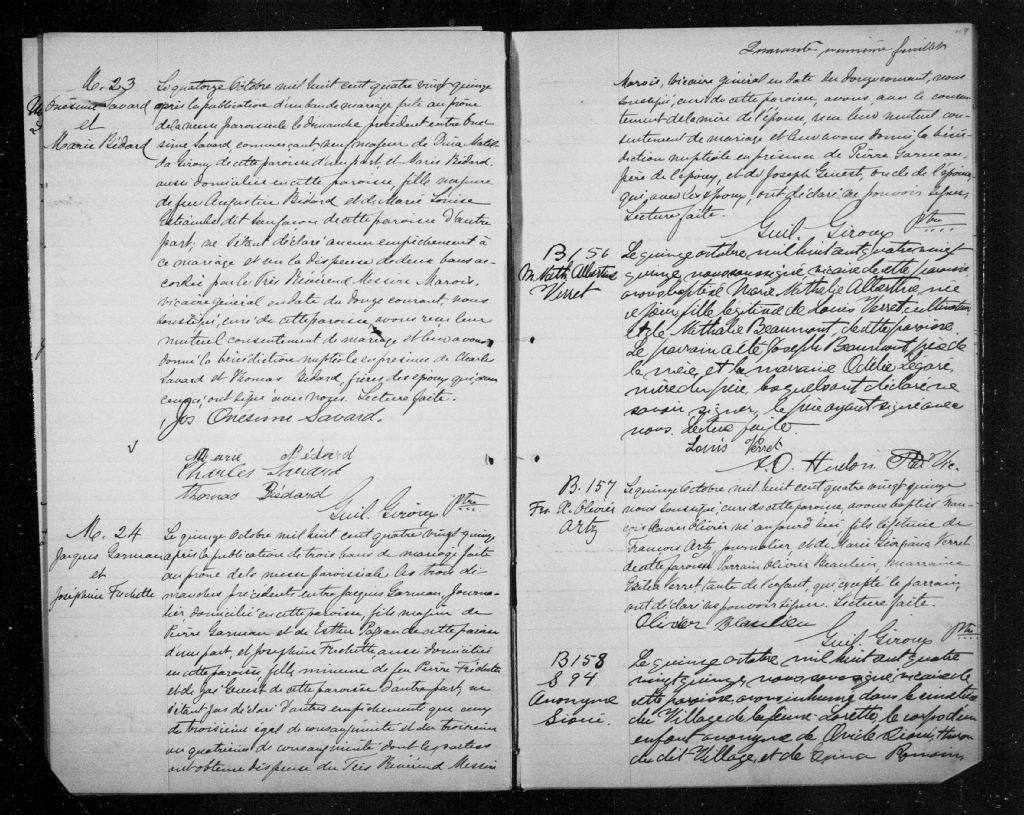 M. 23
Onésime Savard
et
Marie Bédard
Le quatorze Octobre mil huit cent quatre vingt quinze
après la publication d'un ban de mariage faite au prône
de la messe paroissiale le dimanche précédent entre Oné-
sime Savard, commerçant, veuf majeur de Dina Matil-
da Giroux de cette paroisse d'un part, et Marie Bédard,
aussi domiciliée en cette paroisse, fille majeure
de feu Augustin Bédard et de Marie Louise
dit de cette paroisse d'autre
part; ne s'étant déclaré aucun empêchement à
ce mariage et vu la dispense de deux bans ac-
cordée par le Très Révérend Messire Marois,
vicaire général en date du douze courant, nous
soussigné, curé de cette paroisse avons reçu leur
mutuel consentement de mariage et leur avons
donné la bénédiction nuptiale en présence de Charles
Savard et Thomas Bédard, frères des époux qui, avec
ceux-ci, ont signé avec nous. Lecture faite.
Jos Onésime Savard.
Marie Bédard
Charles Savard
Thomas Bédard
Guil Giroux Ptre
M. 24
Jacques Garneau
et
Joséphine Frechette
Le quinze Octobre mil huit cent quatre vingt quinze
après la publication de trois bans de mariage faite
au prône de la messe paroissiale les trois di-
manches précédents entre Jacques Garneau, journa-
lier, domicilié en cette paroisse, fils majeur de
Pierre Garneau et de Esther de cette paroisse
d'une part, et Joséphine Frechette aussi domiciliée
en cette paroisse, fille mineure de feu Pierre Fréchette
et de Genest de cette paroisse d'autre part; ne
s'étant pas déclaré d'autres empêchements que ceux
du troisième égal de consanguinité et du troisième
au quatrième de consanguinité dont les parties
ont obtenu dispense du Très Révérend Messire
Quarante neuvième feuillet
Marois, Vicaire général en date du douze courant, nous
soussigné, curé de cette paroisse, avons, avec le consen-
tement de la mère de l'épouse, reçu leur mutuel con-
sentement de mariage et leur avons donné la béné-
diction nuptiale en présence de Pierre Garneau,
père de l'époux, et de Joseph Genest, oncle de l'épouse
qui, avec les époux, ont déclaré ne pouvoir signer,
Lecture faite.
Guil Giroux Ptre
B 156
M. Nath. Albertine
Verret
Le quinze octobre, mil huit cent quatre vingt
quinze, nous soussigné, vicaire de cette paroisse
avons baptisé Marie Nathalie Albertine, née
ce jour, fille légitime de Louis Verret, cultivateur
et de Nathalie Beaumont de cette paroisse.
Le parrain a été Joseph Beaumont, père de
la mère, et la marraine Odélie Légaré,
mère du père, lesquels ont déclaré ne
savoir signer, le père ayant signé avec
nous. Lecture faite.
Louis Verret
A.O. Hudon Ptre Vic.
B. 157
Frs X. Olivier
Artz
Le quinze Octobre mil huit cent quatre vingt quinze
nous soussigné, curé de cette paroisse, avons baptisé Fran-
çois Xavier Olivier né aujourd'hui, fils légitime de
François Artz, journalier, et de Marie Giorgiana Verret
de cette paroisse. Parrain Olivier Beaulieu, marraine
Verret, tante de l'enfant, qui, excepté le parrain,
ont déclaré ne pouvoir signer. Lecture faite.
Olivier Beaulieu
Guil Giroux Ptre
B 158
S 94
Anonyme
Sioui.
Le quinze octobre, mil huit cent quatre
vingt quinze, nous soussigné, vicaire de
cette paroisse, avons inhumé dans le cimetière
du Village de la Jeune Lorette, le corps d'un
enfant anonyme de Ovide Sioui, Huron
du dit Village, et de Romain